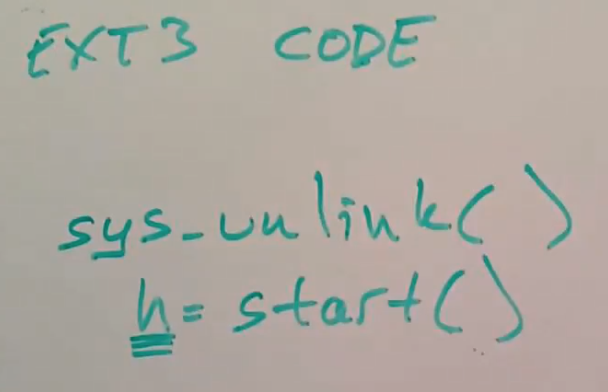 EXT3 CODE
sys_unlink()
h = start()